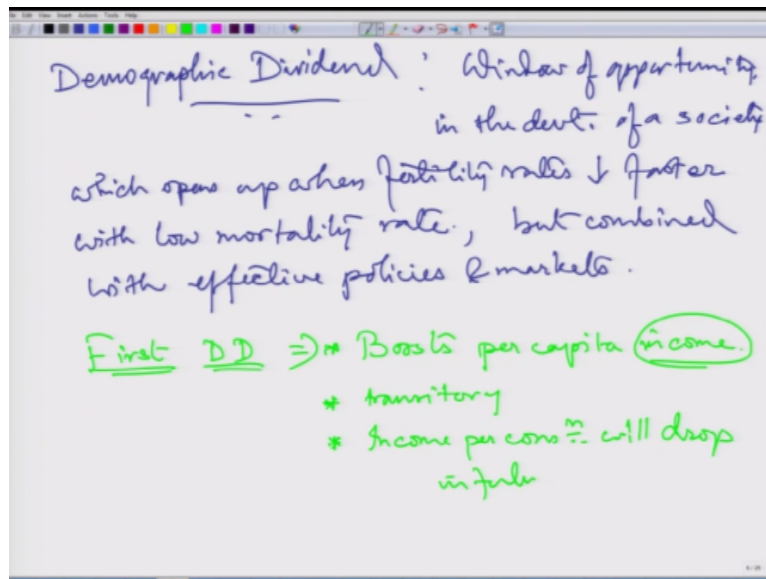 Demographic Dividend : Window of opportunity
in the devt. of a society
which opens up when fertility rates ↓ faster
with low mortality rate, but combined
with effective policies & markets.
First DD ⇒ * Boosts per capita income.
* transitory
* Income per consn. will drop
in